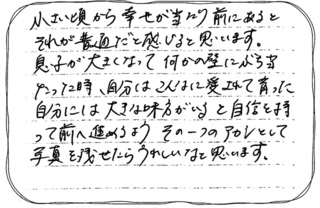 小さい頃から幸せが当たり前にあると
それが普通だと感じると思います。
息子が大きくなって何かの壁にぶち当
たった時、自分はこんなに愛されて育った
自分には大きな味方がいると自信を持
って前へ進めるよう その一つのアカシとして
写真を残せたらうれしいなと思います。